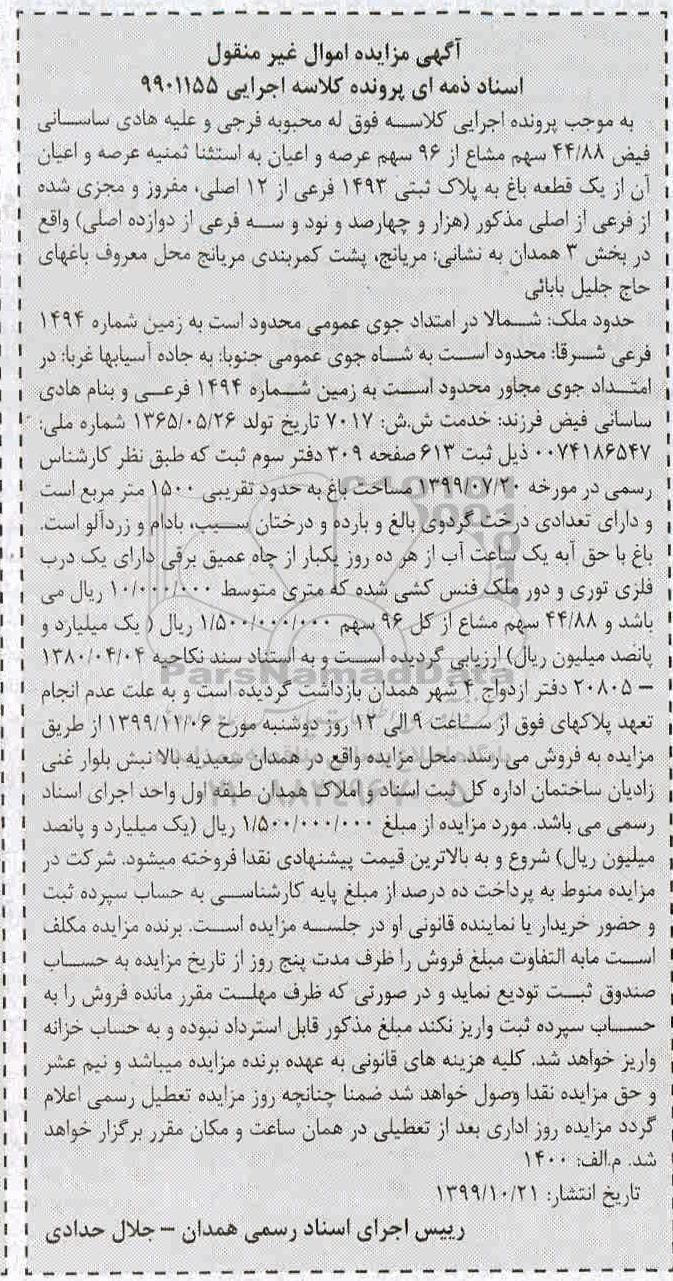 آگهی مزایده اموال غیر منقول
اسناد ذمه ای پرونده کلاسه اجرایی ۹۹۰۱۱۵۵
به موجب پرونده اجرایی کلاسه فوق له محبوبه فرجی و علیه هادی ساسانی
فیض ۴۴/۸۸ سهم مشاع از ۹۶ سهم عرصه و اعیان به استثنا ثمنیه عرصه و اعیان
آن از یک قطعه باغ به پلاک ثبتی ۱۴۹۳ فرعی از ۱۲ اصلی، مفروز و مجزی شده
از فرعی از اصلی مذکور (هزار و چهارصد و نود و سه فرعی از دوازده اصلی) واقع
در بخش ۳ همدان به نشانی: مریانج، پشت کمربندی مریانج محل معروف باغهای
حاج جلیل بابائی
حدود ملک: شمالا در امتداد جوی عمومی محدود است به زمین شماره ۱۴۹۴
فرعی شرقا: محدود است به شاه جوی عمومی جنوبا: به جاده آسیابها غربا: در
امتداد جوی مجاور محدود است به زمین شماره ۱۴۹۴ فرعی و بنام هادی
ساسانی فیض فرزند: خدمت ش.ش: ۷۰۱۷ تاریخ تولد ۱۳۶۵/۰۵/۲۶ شماره ملی:
۰۰۷۴۱۸۶۵۴۷ ذیل ثبت ۶۱۳ صفحه ۳۰۹ دفتر سوم ثبت که طبق نظر کارشناس
رسمی در مورخه ۱۳۹۹/۰۷/۲۰ مساحت باغ به حدود تقریبی ۱۵۰۰ متر مربع است
و دارای تعدادی درخت گردوی بالغ و بارده و درختان سیب، بادام و زردآلو است.
باغ با حق آبه یک ساعت آب از هر ده روز یکبار از چاه عمیق برقی دارای یک درب
فلزی توری و دور ملک فنس کشی شده که متری متوسط ۱۰/۰۰۰/۰۰۰ ریال می
باشد و ۴۴/۸۸ سهم مشاع از کل ۹۶ سهم ۱/۵۰۰/۰۰۰/۰۰۰ ریال ( یک میلیارد و
پانصد میلیون ریال) ارزیابی گردیده است و به استناد سند نکاحیه ۱۳۸۰/۰۴/۰۴
– ۲۰۸۰۵ دفتر ازدواج ۴ شهر همدان بازداشت گردیده است و به علت عدم انجام
تعهد پلاکهای فوق از ساعت ۹ الی ۱۲ روز دوشنبه مورخ ۱۳۹۹/۱۱/۰۶ از طریق
مزایده به فروش می رسد. محل مزایده واقع در همدان سعیدیه بالا نبش بلوار غنی
زادیان ساختمان اداره کل ثبت اسناد و املاک همدان طبقه اول واحد اجرای اسناد
رسمی می باشد. مورد مزایده از مبلغ ۱/۵۰۰/۰۰۰/۰۰۰ ریال (یک میلیارد و پانصد
میلیون ریال) شروع و به بالاترین قیمت پیشنهادی نقدا فروخته میشود. شرکت در
مزایده منوط به پرداخت ده درصد از مبلغ پایه کارشناسی به حساب سپرده ثبت
و حضور خریدار یا نماینده قانونی او در جلسه مزایده است. برنده مزایده مکلف
است مابه التفاوت مبلغ فروش را ظرف مدت پنج روز از تاریخ مزایده به حساب
صندوق ثبت تودیع نماید و در صورتی که ظرف مهلت مقرر مانده فروش را به
حساب سپرده ثبت واریز نکند مبلغ مذکور قابل استرداد نبوده و به حساب خزانه
واریز خواهد شد. کلیه هزینه های قانونی به عهده برنده مزایده میباشد و نیم عشر
و حق مزایده نقدا وصول خواهد شد ضمنا چنانچه روز مزایده تعطیل رسمی اعلام
گردد مزایده روز اداری بعد از تعطیلی در همان ساعت و مکان مقرر برگزار خواهد
شد. م.الف: ۱۴۰۰
تاریخ انتشار: ۱۳۹۹/۱۰/۲۱
رییس اجرای اسناد رسمی همدان – جلال حدادی
ParsNamadData